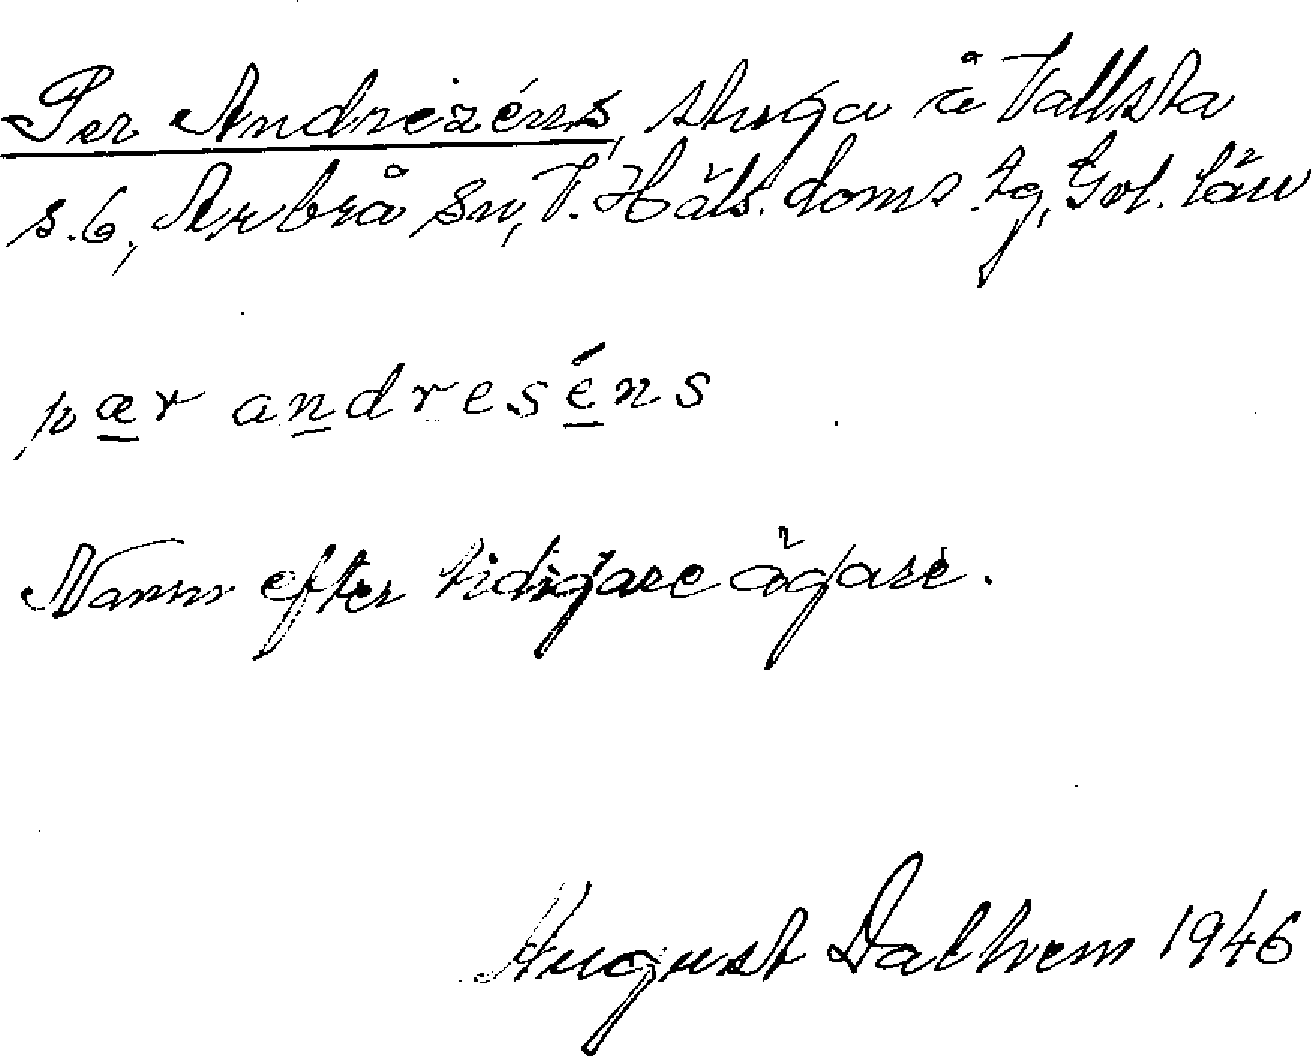 Per Andrezéns, stuga å Vallsta
s. 6, Arbrå sn, V. Häls. doms. tg, Gvl. län
pær andreséns
Namn efter tidigare ägare.
August Dalhem 1946